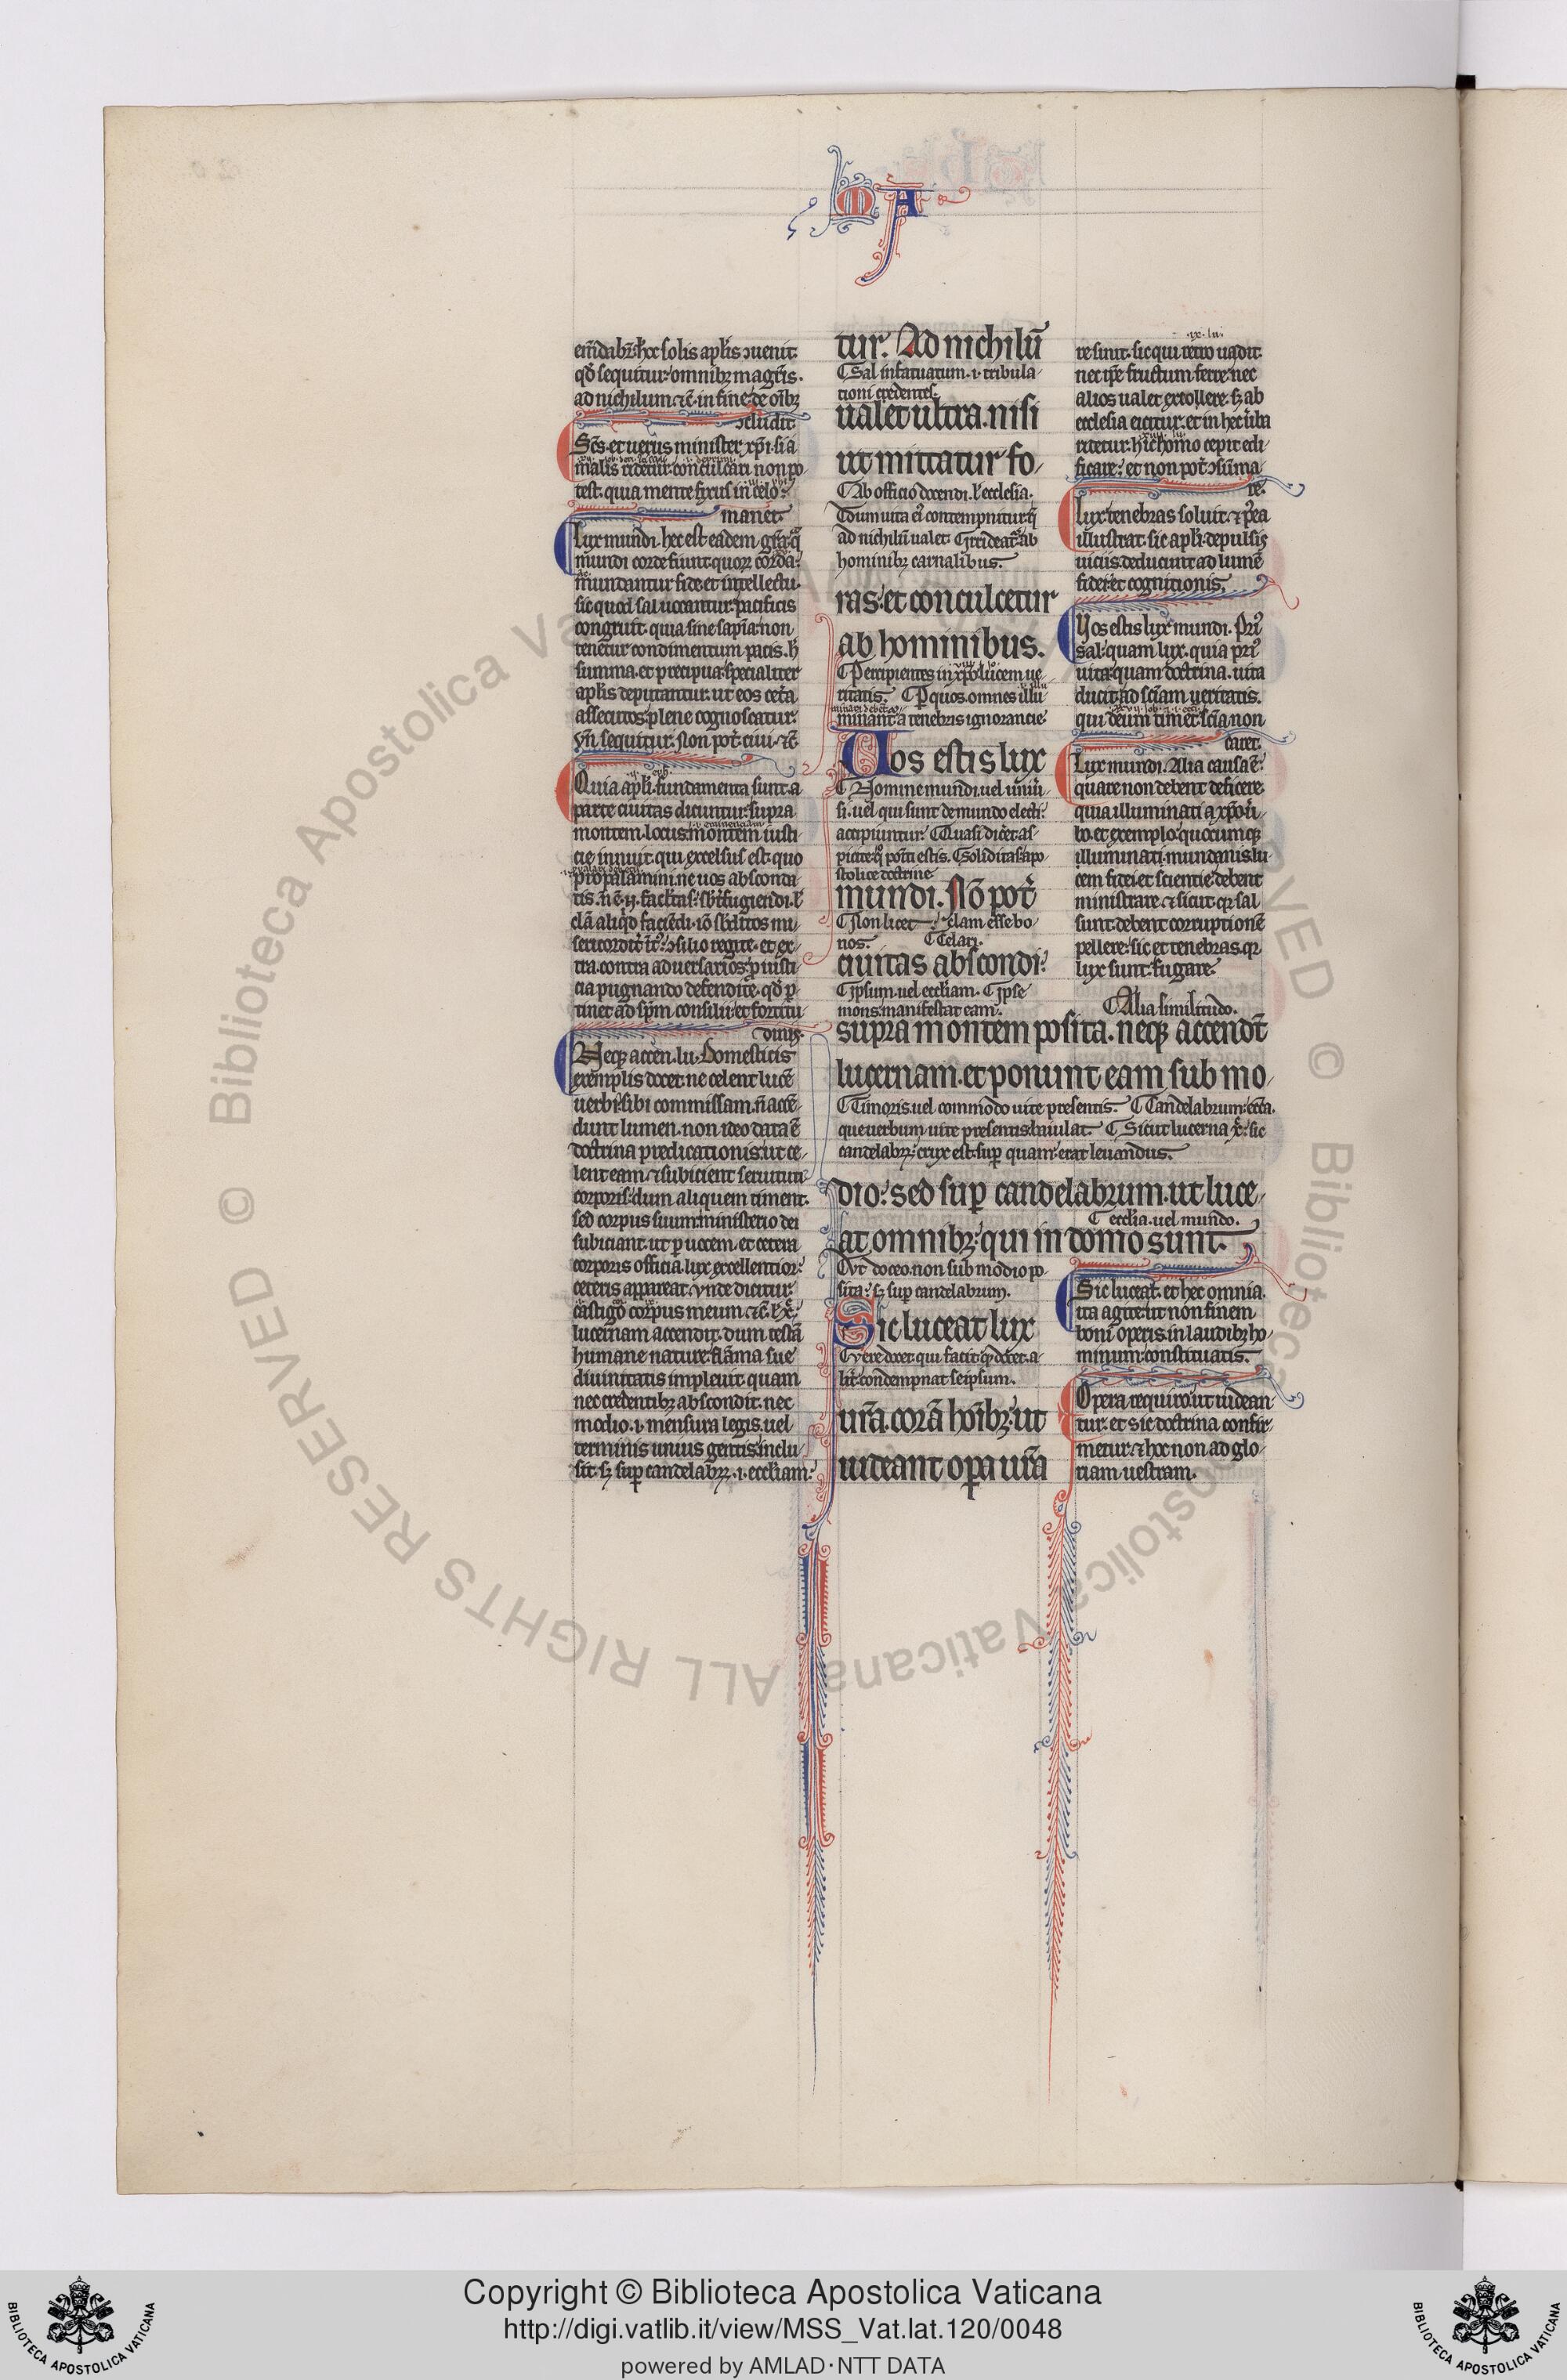 M A
emendab̄r. hoc solis aplis ꝯuenit.
qđ sequitur. omnibꝫ magr̄is.
ad nichilum ⁊c̄. in fine de oībꝫ
ꝯcludit.
Scs. et uerus minister xp̄i. si a
malis uidetur conculcari non po
test. quia mente fixus in celo
manet.
Lux mundi. hec est eadem
mundi corde fiunt quoꝝ corda
mundantur fide. et intellectu.
sic quod sal uocantur. pacificis
congruit. quia sine sapīa. non
tenetur condimentum pacis. h̄
summa. et precipua. specialiter
aplis deputantur. ut eos cet̄a
assecutos. plene cognoscatur.
vn̄ sequitur. Non pot̄ ciui. ⁊c̄.
Quia apl̄i. fundamenta sunt. a
parte ciuitas dicuntur. supra
montem. locus montem iusti
cie innuit. qui excelsus est. quo
propalamini. ne uos absconda
clā aliqd faciēdi. iō sbditos mi
sericordit̄ ꝯsilio regite. et ex
tra. contra aduersarios. ꝓ iusti
cia pugnando defendite. qđ ꝑ
tinet ad sp̄m consilii. et fortitu
dinis.
Neqꝫ accen. lu. Domesticis
exemplis docet. ne celent lucē
uerbi. sibi commissam. n̄ accē
dunt lumen. non ideo data ē
doctrina predicationis. ut ce
lent eam. ⁊ subicient seruituti
corporis. dum aliquem timent.
sed corpus suum. ministerio dei
subiciant. ut ꝑ uocem. et cetera
corporis officia. lux excellentior.
ceteris appareat. vnde dicitur.
castigo corpus meum ⁊c̄.
lucernam accendit. dum testā
humane nature. flāma sue
diuinitatis impleuit. quam
nec credentibꝫ abscondit. nec
modio. i. mensura legis. uel
terminis unius gentis. inclu
sit. sꝫ suꝑ candelabꝝ. i. eccliam.
tur. Ad nichilū
Sal infatuatum. i. tribula
tioni credentes.
ualet ultra. nisi
ut mittatur fo
Ab officio docendi. ł ecclesia.
dum uita ei contempnitur.
ad nichilū ualet. ab
hominibꝫ carnalibus.
ras. et conculcetur
ab hominibus.
Percipientes in xp̄o lucem ue
ritatis. P quos. omnes illu
minant. a tenebris ignorancie.
Uos estis lux
Homine mundi. uel uniū
si. uel qui sunt de mundo electi.
accipiuntur. Quasi dicet. as
picite qđ estis. Soliditas apo
stolice doctrine.
mundi. Nō pot̄
Non licet clam esse bo
nos. Celari.
ciuitas abscondi.
Ipsum. uel eccliam. Ipse
mons. manifestat eam.
supra montem posita. neqꝫ accendt̄
lucernam. et ponunt eam sub mo
Timoris. uel commodo uite presentis. Candelabrum.
que uerbum uite presentis baiulat. Sicut lucerna sic
candelabꝝ. crux est. suꝑ quam. erat leuandus.
dio. sed suꝑ candelabrum. ut luce
ecclia. uel mundo.
at omnibꝫ. qui in domo sunt.
Vt doceo. non sub modio po
sita. sꝫ suꝑ candelabrum.
Sic luceat lux
Vere docet qui facit docet. a
lit̄. condempnat seipsum.
ur̄a. corā hoībꝫ. ut
uideant oꝑa ur̄a
ix. lu.
re sinit. sic qui retro uadit.
nec ip̄e fructum ferre. nec
alios ualet excollere. sꝫ ab
ecclesia eicitur. et in hec ūba
ridetur. hic homo cepit edi
ficare. et non pot̄ ꝯsūma
re.
Lux tenebras soluit.
illustrat. sic apl̄i. depulsis
uiciis. deducunt ad lumē
fidei. et cognitionis.
Uos estis lux mundi. Pri
sal. quam lux. quia pri
uita. quam doctrina. uita
ducit. ad sciam ueritatis.
qui deum timet. scia non
caret.
Lux mundi. Alia causa ē.
quare non debent deficere.
quia illuminati a xp̄o.
bo. et exemplo. quocumqꝫ
illuminati. mundanis. lu
cem fidei et scientie. debent
ministrare. ⁊ sicut sal
sunt. debent corruptionē
pellere. sic et tenebras.
lux sunt. fugare.
Alia similitudo.
Sic luceat. et hec omnia.
ita agite. ut non finem
boni operis. in laudibꝫ ho
minum. constituatis.
Opera requiro. ut uidean
tur. et sic doctrina confir
metur. ⁊ hoc non ad glo
riam uestram.
© Biblioteca Apostolica Vaticana ALL RIGHTS RESERVED
Copyright © Biblioteca Apostolica Vaticana
http://digi.vatlib.it/view/MSS_Vat.lat.120/0048
powered by AMLAD·NTT DATA
BIBLIOTECA APOSTOLICA VATICANA
BIBLIOTECA APOSTOLICA VATICANA